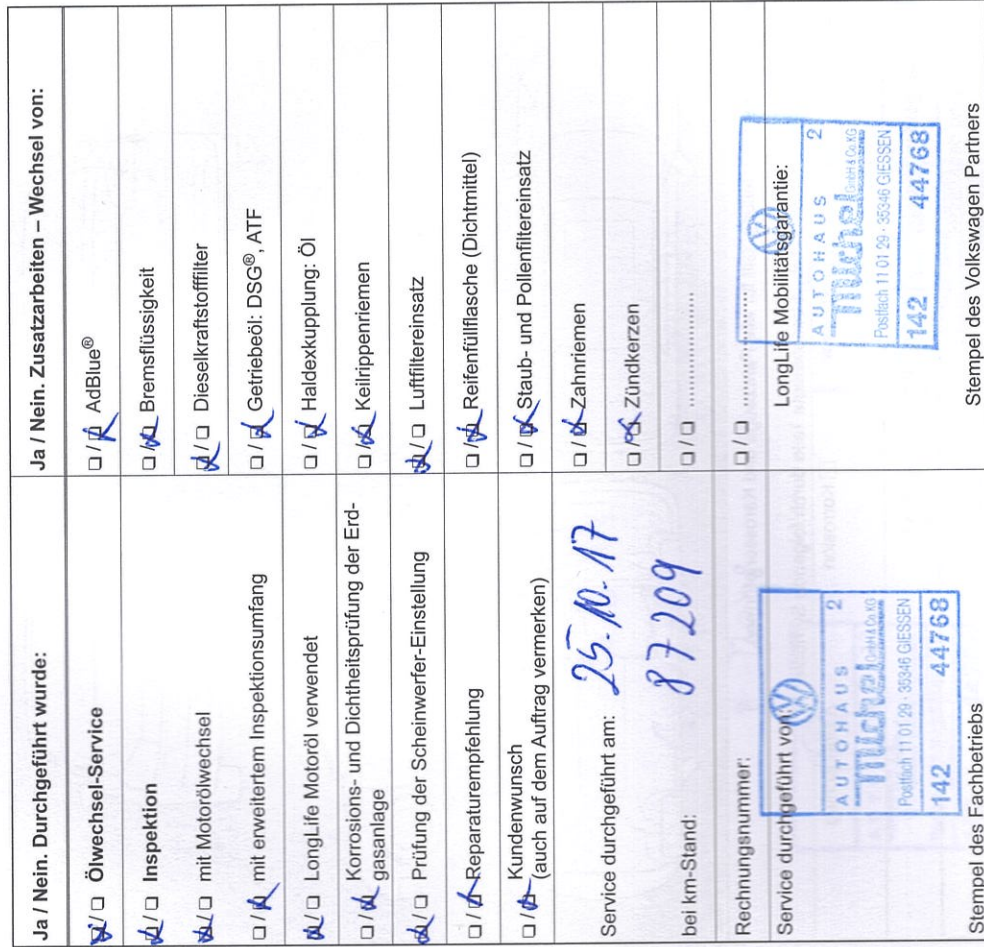 Ja / Nein. Durchgeführt wurde:
☒/☐ Ölwechsel-Service
☒/☐ Inspektion
☒/☐ mit Motorölwechsel
☐/☒ mit erweitertem Inspektionsumfang
☒/☐ LongLife Motoröl verwendet
☐/☒ Korrosions- und Dichtheitsprüfung der Erd-
gasanlage
☒/☐ Prüfung der Scheinwerfer-Einstellung
☐/☒ Reparaturempfehlung
☐/☒ Kundenwunsch
(auch auf dem Auftrag vermerken)
Service durchgeführt am: 25.10.17
bei km-Stand: 87209
Rechnungsnummer:
Service durchgeführt von:
AUTOHAUS 2
michel GmbH & Co.KG
Postfach 11 01 29 · 35346 GIESSEN
142 44768
Stempel des Fachbetriebs
Ja / Nein. Zusatzarbeiten – Wechsel von:
☐/☒ AdBlue®
☐/☒ Bremsflüssigkeit
☒/☐ Dieselkraftstofffilter
☐/☒ Getriebeöl: DSG®, ATF
☐/☒ Haldexkupplung: Öl
☐/☒ Keilrippenriemen
☒/☐ Luftfiltereinsatz
☐/☒ Reifenfüllflasche (Dichtmittel)
☐/☒ Staub- und Pollenfiltereinsatz
☐/☒ Zahnriemen
☐/☒ Zündkerzen
☐/☐ ........................
☐/☐ ........................
LongLife Mobilitätsgarantie:
AUTOHAUS 2
michel GmbH & Co.KG
Postfach 11 01 29 · 35346 GIESSEN
142 44768
Stempel des Volkswagen Partners